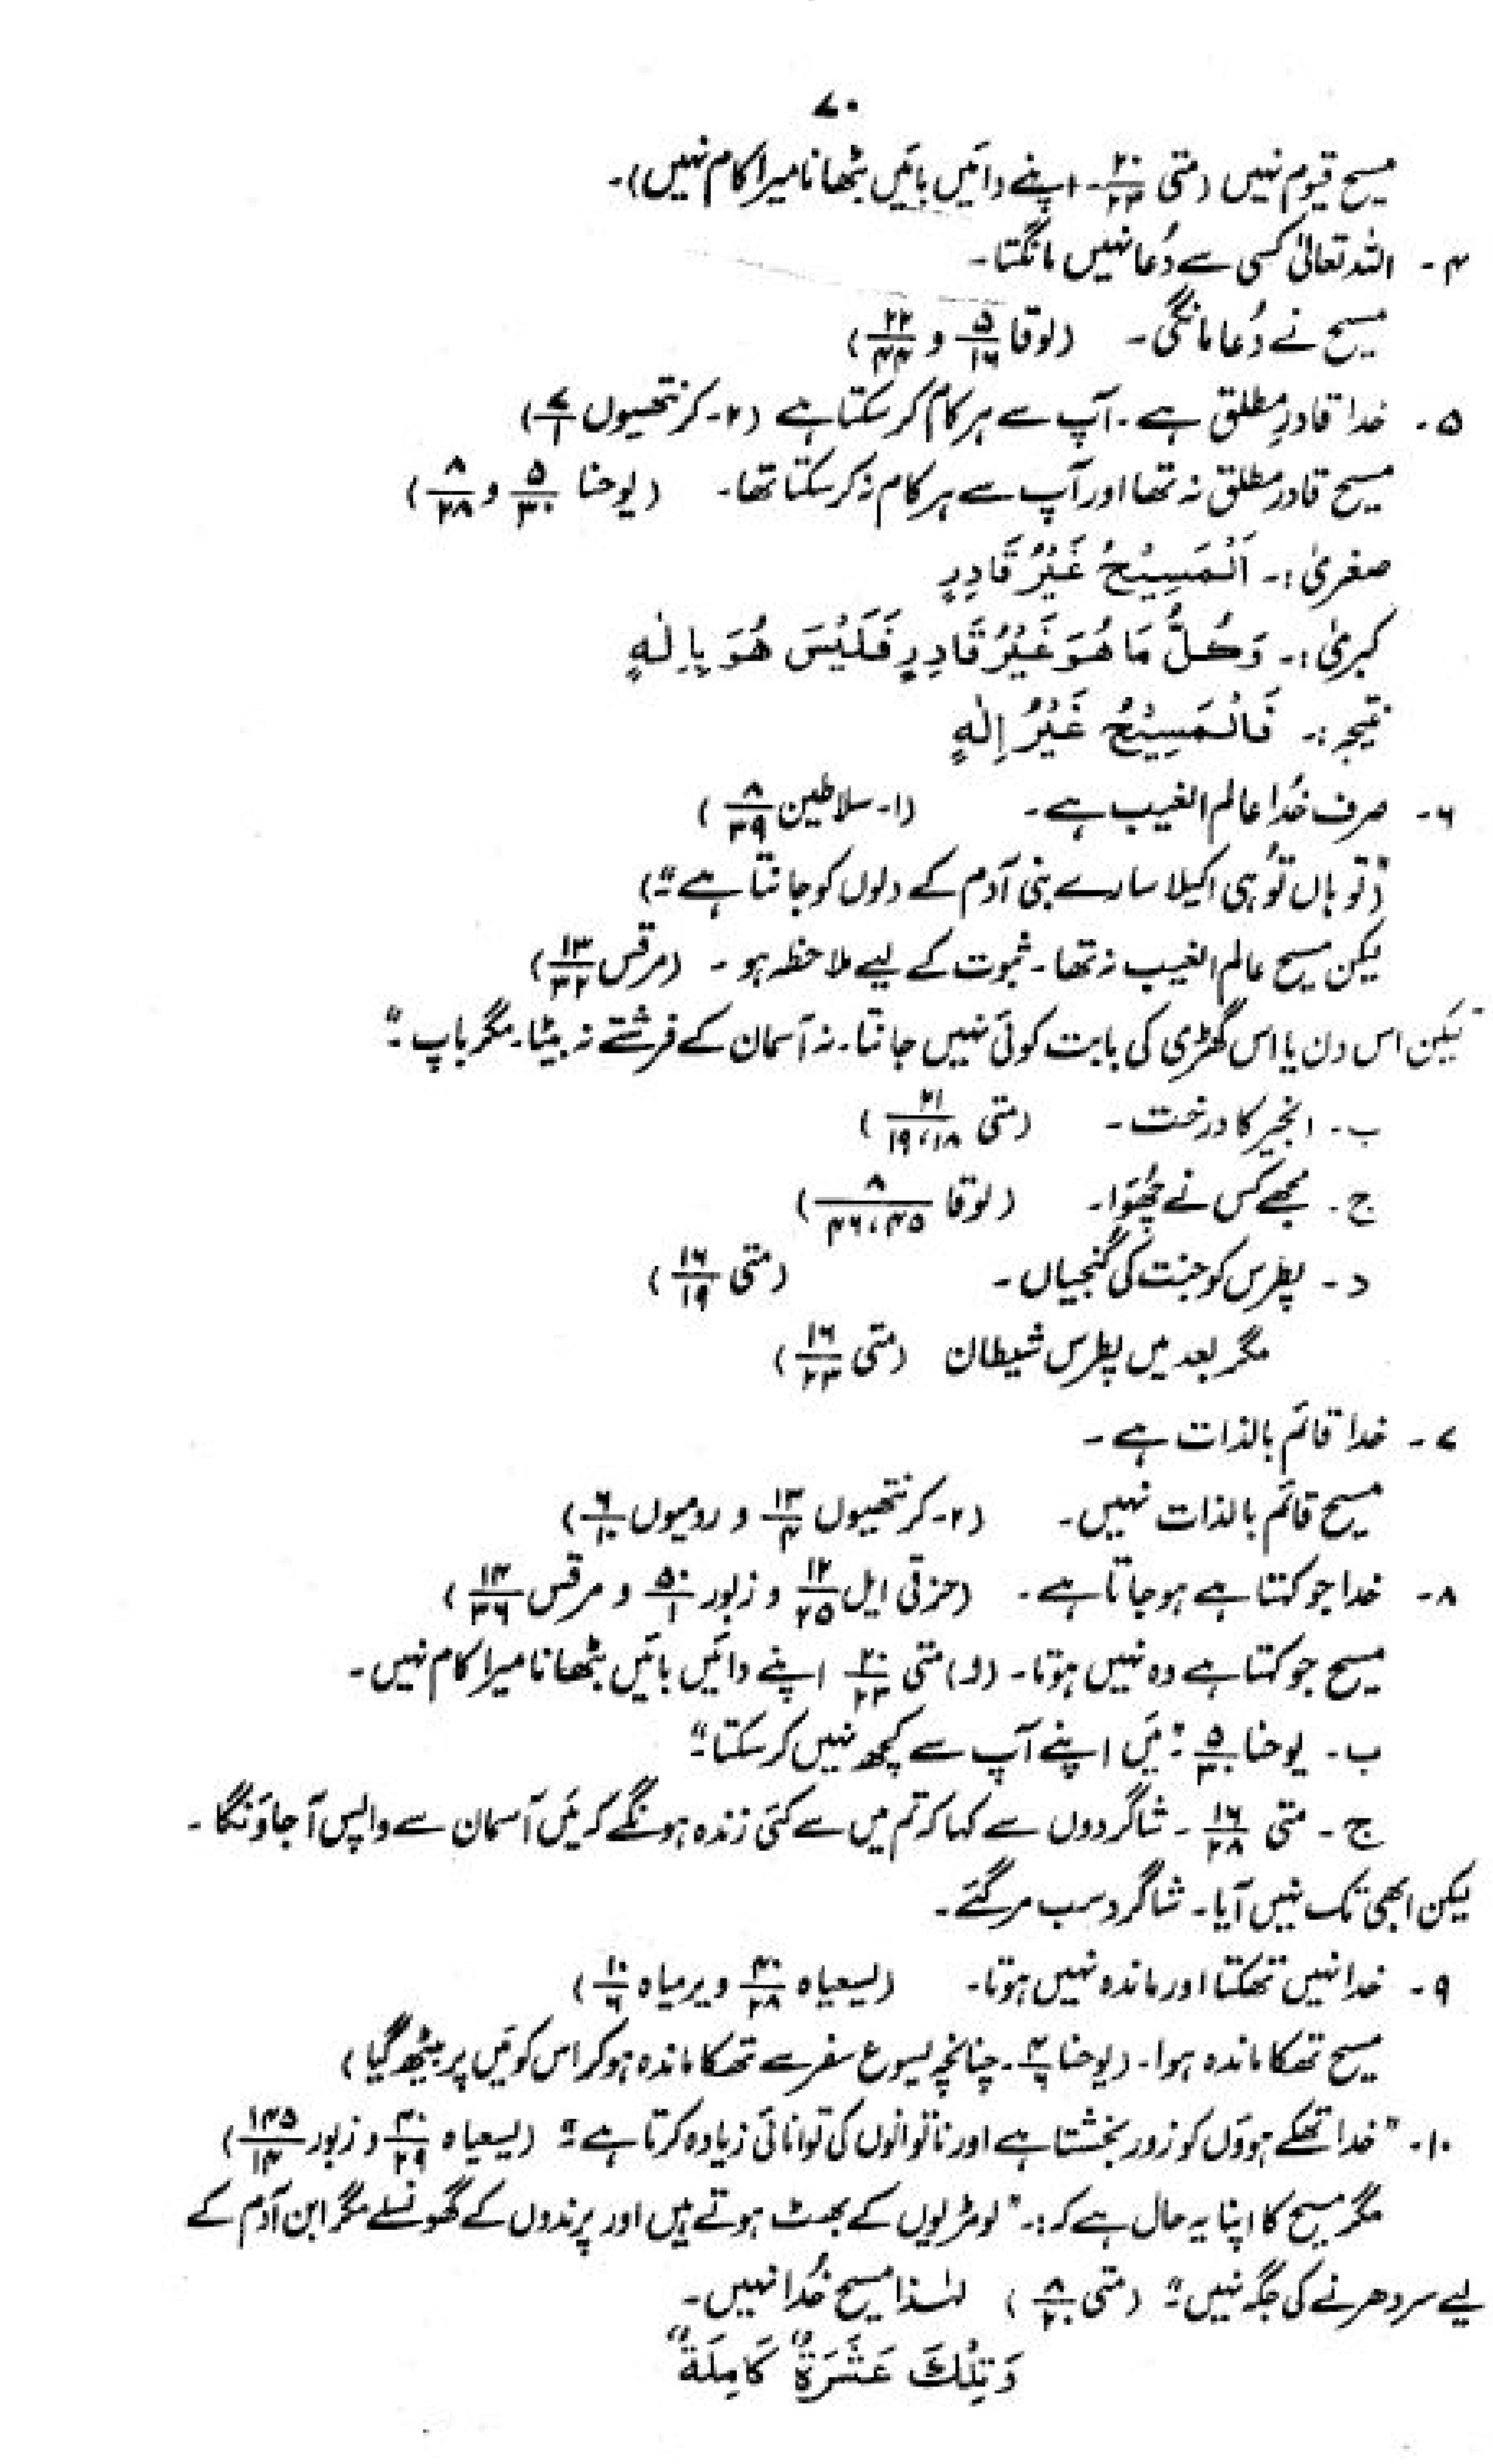 ۷۰
مسیح قیوم نہیں (متی ۲۰/۲۳۔ اپنے دائیں بائیں بٹھانا میرا کام نہیں)۔
۴۔ اللہ تعالیٰ کسی سے دُعا نہیں مانگتا۔
مسیح نے دُعا مانگی۔ (لوقا ۵/۱۶ و ۲۲/۴۴)
۵۔ خدا قادرِ مطلق ہے۔ آپ سے ہر کام کر سکتا ہے (۲۔کرنتھیوں ۷/۱)
مسیح قادر مطلق نہ تھا اور آپ سے ہر کام نہ کر سکتا تھا۔ (یوحنا ۵/۳۰ و ۸/۲۸)
صغریٰ:۔ اَلْمَسِیْحُ غَیْرُ قَادِرٍ
کبریٰ:۔ وَکُلُّ مَا ھُوَ غَیْرُ قَادِرٍ فَلَیْسَ ھُوَ بِاِلٰہٍ
نتیجہ:۔ فَالْمَسِیْحُ غَیْرُ اِلٰہٍ
۶۔ صرف خُدا عالم الغیب ہے۔ (۱۔سلاطین ۸/۳۹)
("تو ہاں تُو ہی اکیلا سارے بنی آدم کے دلوں کو جانتا ہے۔")
لیکن مسیح عالم الغیب نہ تھا۔ ثبوت کے لیے ملاحظہ ہو۔ (مرقس ۱۳/۳۲)
"لیکن اس دن یا اس گھڑی کی بابت کوئی نہیں جانتا۔ نہ آسمان کے فرشتے نہ بیٹا۔ مگر باپ۔"
ب۔ انجیر کا درخت۔ (متی ۲۱/۱۹،۱۸)
ج۔ مجھے کس نے چُھوا۔ (لوقا ۸/۴۶،۴۵)
د۔ پطرس کو جنت کی کنجیاں۔ (متی ۱۶/۱۹)
مگر بعد میں پطرس شیطان (متی ۱۶/۲۳)
۷۔ خدا قائم بالذات ہے۔
مسیح قائم بالذات نہیں۔ (۲۔کرنتھیوں ۱۳/۴ و رومیوں ۶/۱۰)
۸۔ خدا جو کہتا ہے ہو جاتا ہے۔ (حزقی ایل ۱۲/۲۵ و زبور ۵۰/۱ و مرقس ۱۴/۳۶)
مسیح جو کہتا ہے وہ نہیں ہوتا۔ (ا) متی ۲۰/۲۳ اپنے دائیں بائیں بٹھانا میرا کام نہیں۔
ب۔ یوحنا ۵/۳۰ "میَں اپنے آپ سے کچھ نہیں کر سکتا۔"
ج۔ متی ۱۶/۲۸۔ شاگردوں سے کہا کہ تم میں سے کئی زندہ ہونگے کہ میَں آسمان سے واپس آ جاؤنگا۔
لیکن ابھی تک نہیں آیا۔ شاگرد سب مر گئے۔
۹۔ خدا نہیں تھکتا اور ماندہ نہیں ہوتا۔ (یسعیاہ ۴۰/۲۸ و یرمیاہ ۱۰/۶)
مسیح تھکا ماندہ ہوا۔ (یوحنا ۴/۶۔ چنانچہ یسوع سفر سے تھکا ماندہ ہو کر اس کوئیں پر بیٹھ گیا)
۱۰۔ "خدا تھکے ہوؤں کو زور بخشتا ہے اور ناتوانوں کی توانائی زیادہ کرتا ہے۔" (یسعیاہ ۴۰/۲۹ و زبور ۱۴۵/۱۴)
مگر مسیح کا اپنا یہ حال ہے کہ:۔ "لومڑیوں کے بھٹ ہوتے ہیں اور پرندوں کے گھونسلے مگر ابن آدم کے
لیے سر دھرنے کی جگہ نہیں۔" (متی ۸/۲۰) لہٰذا مسیح خُدا نہیں۔
وَتِلْکَ عَشَرَۃٌ کَامِلَۃٌ